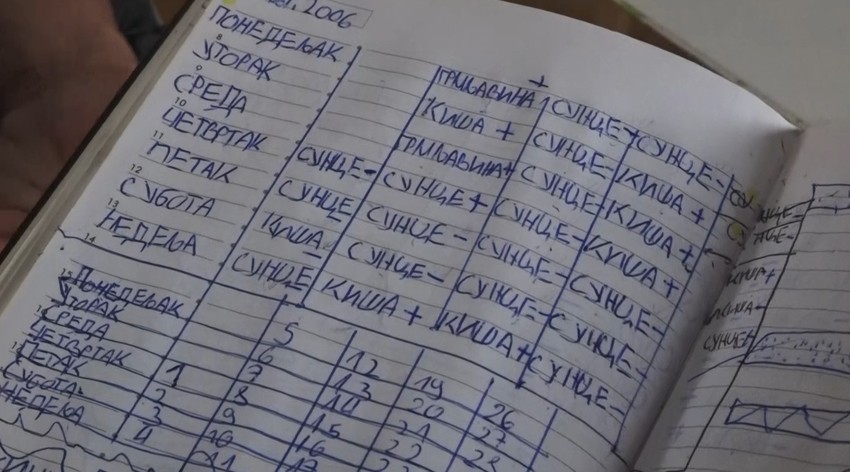 2006
ПОНЕДЕЉАК ГРМЉАВИНА + СУНЦЕ + СУНЦЕ -
8 УТОРАК КИША + СУНЦЕ - КИША +
9 СРЕДА ГРМЉАВИНА + СУНЦЕ - КИША +
10 ЧЕТВРТАК СУНЦЕ - СУНЦЕ + СУНЦЕ - КИША +
11 ПЕТАК СУНЦЕ СУНЦЕ - СУНЦЕ - СУНЦЕ -
12 СУБОТА КИША СУНЦЕ - СУНЦЕ - СУНЦЕ -
13 НЕДЕЉА СУНЦЕ КИША + КИША + СУНЦЕ -
14
ПОНЕДЕЉАК 5 12 19 26
УТОРАК 6 13 20 27
СРЕДА 7 14 21 28
ЧЕТВРТАК 1 8 15 22
ПЕТАК 2 9 16
СУБОТА 3 10
НЕДЕЉА 4 11
КИША +
СУНЦЕ